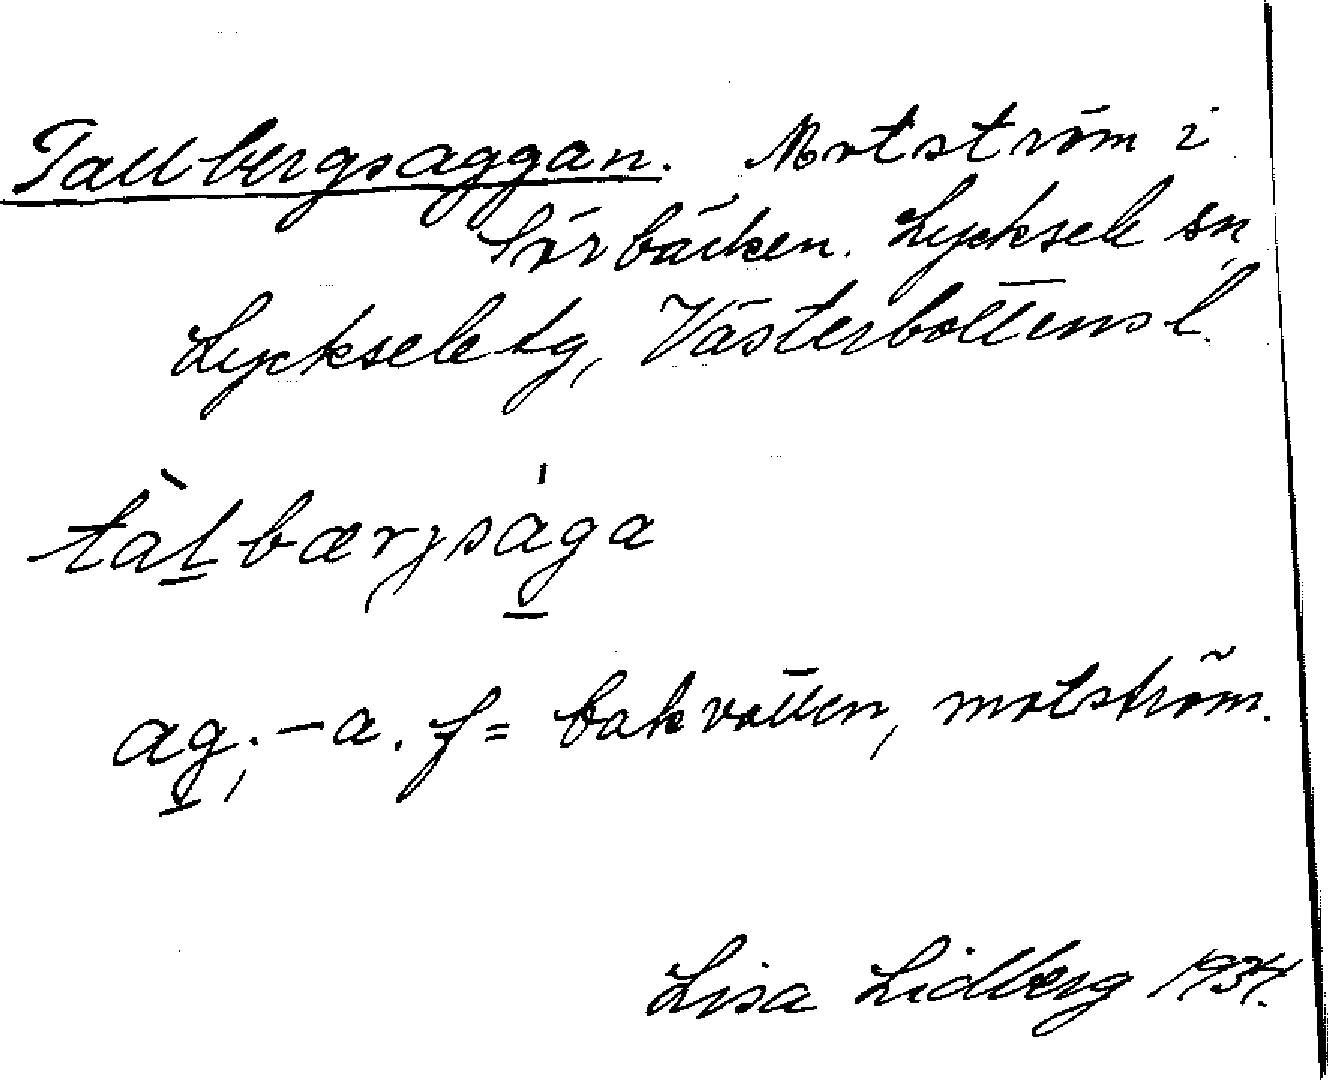 Tallbergsaggan. Motström i
Sörbäcken. Lycksele sn,
Lycksele tg, Västerbottens l.
tàl̲bærjság̲a
ag̲; -a. f = bakvatten, motström.
Lisa Lidberg 1934.